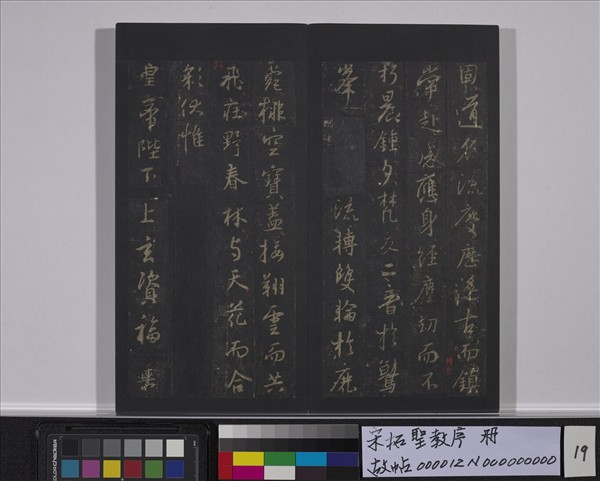 固道名流慶歷遂古而鎮
常赴感應身經塵劫而不
朽晨鍾夕梵交二音於鷲
峯
流轉雙輪於鹿
菀排空寶蓋接翔雲而共
飛莊野春林与天花而合
彩伏惟
皇帝陛下上玄資福垂
宋拓聖教序 冊
故帖000012N000000000
19